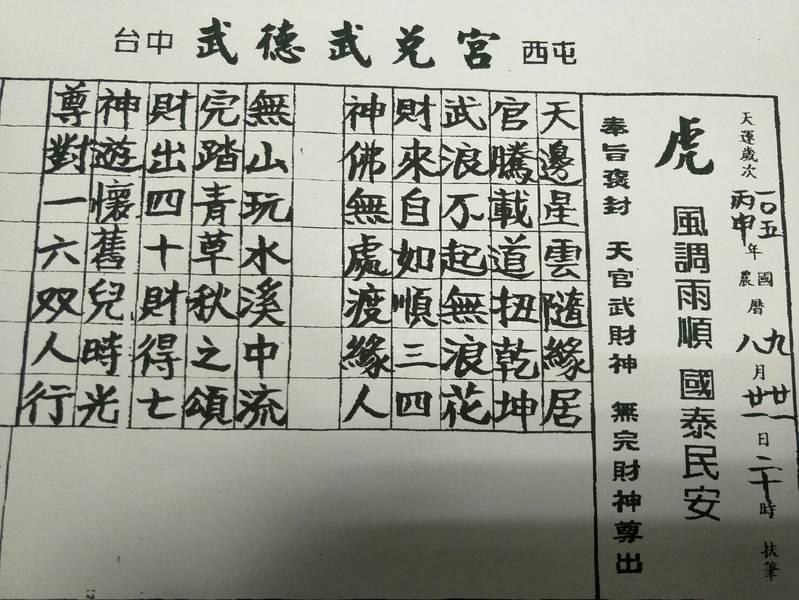 台中 武德武兌宮 西屯
天運歲次 一〇五 丙申 年 國 農 曆 九 八 月 廿一 廿一 日 二十 時 扶筆
虎 風調雨順 國泰民安
奉旨褒封 天官武財神 無完財神尊出
天邊星雲隨緣居
官騰載道扭乾坤
武浪不起無浪花
財來自如順三四
神佛無處渡緣人
無山玩水溪中流
完踏青草秋之頌
財出四十財得七
神遊懷舊兒時光
尊對一六双人行